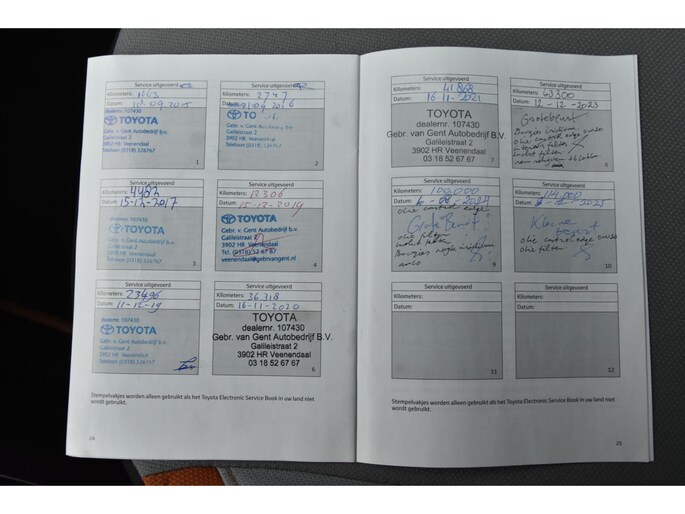 Service uitgevoerd
Kilometers: 1063
Datum: 10.09.2015
107430
Gebr. v. Gent Autobedrijf b.v.
Galileistraat 2
3902 HR Veenendaal
Telefoon (0318) 526767
1
Service uitgevoerd
Kilometers: 2747
Datum: 21.09.2016
TO
Gebr. v. Gent Autobedrijf b.v.
Galileistraat 2
3902 HR Veenendaal
Telefoon (0318) 526767
2
Service uitgevoerd
Kilometers: 4483
Datum: 15-12-2017
107430
TOYOTA
Gebr. v. Gent Autobedrijf b.v.
Galileistraat 2
3902 HR Veenendaal
Telefoon (0318) 526767
3
Service uitgevoerd
Kilometers: 13306
Datum:
TOYOTA
Gebr. v. Gent Autobedrijf b.v.
Galileistraat 2
3902 HR Veenendaal
Tel. (0318) 52 67 67
veenendaal@gebrvangent.nl
4
Service uitgevoerd
Kilometers: 23496
Datum: 11-12-19
dealernr. 107430
TOYOTA
Gebr. v. Gent Autobedrijf b.v.
Galileistraat 2
3902 HR Veenendaal
Telefoon (0318) 526767
Service uitgevoerd
Kilometers: 36.318
Datum: 16-11-2020
TOYOTA
dealernr. 107430
Gebr. van Gent Autobedrijf B.V.
Galileistraat 2
3902 HR Veenendaal
03 18 52 67 67
6
Stempelvakjes worden alleen gebruikt als het Toyota Electronic Service Book in uw land niet
wordt gebruikt.
24
Service uitgevoerd
Kilometers: 41868
Datum: 16-11-2021
TOYOTA
dealernr. 107430
Gebr. van Gent Autobedrijf B.V.
Galileistraat 2
3902 HR Veenendaal
03 18 52 67 67
Service uitgevoerd
Kilometers:
Datum: 12-12-2023
Grote beurt
Bougies iridium
olie castrol edge
interieur filter
8
Service uitgevoerd
Kilometers: 100.000
Datum:
olie castrol edge
Grote Beurt!
olie filter
Bougies
9
Service uitgevoerd
Kilometers: 114.000
Datum:
Kleine
beurt
olie castrol edge
olie filter
10
Service uitgevoerd
Kilometers:
Datum:
11
Service uitgevoerd
Kilometers:
Datum:
12
Stempelvakjes worden alleen gebruikt als het Toyota Electronic Service Book in uw land niet
wordt gebruikt.
25